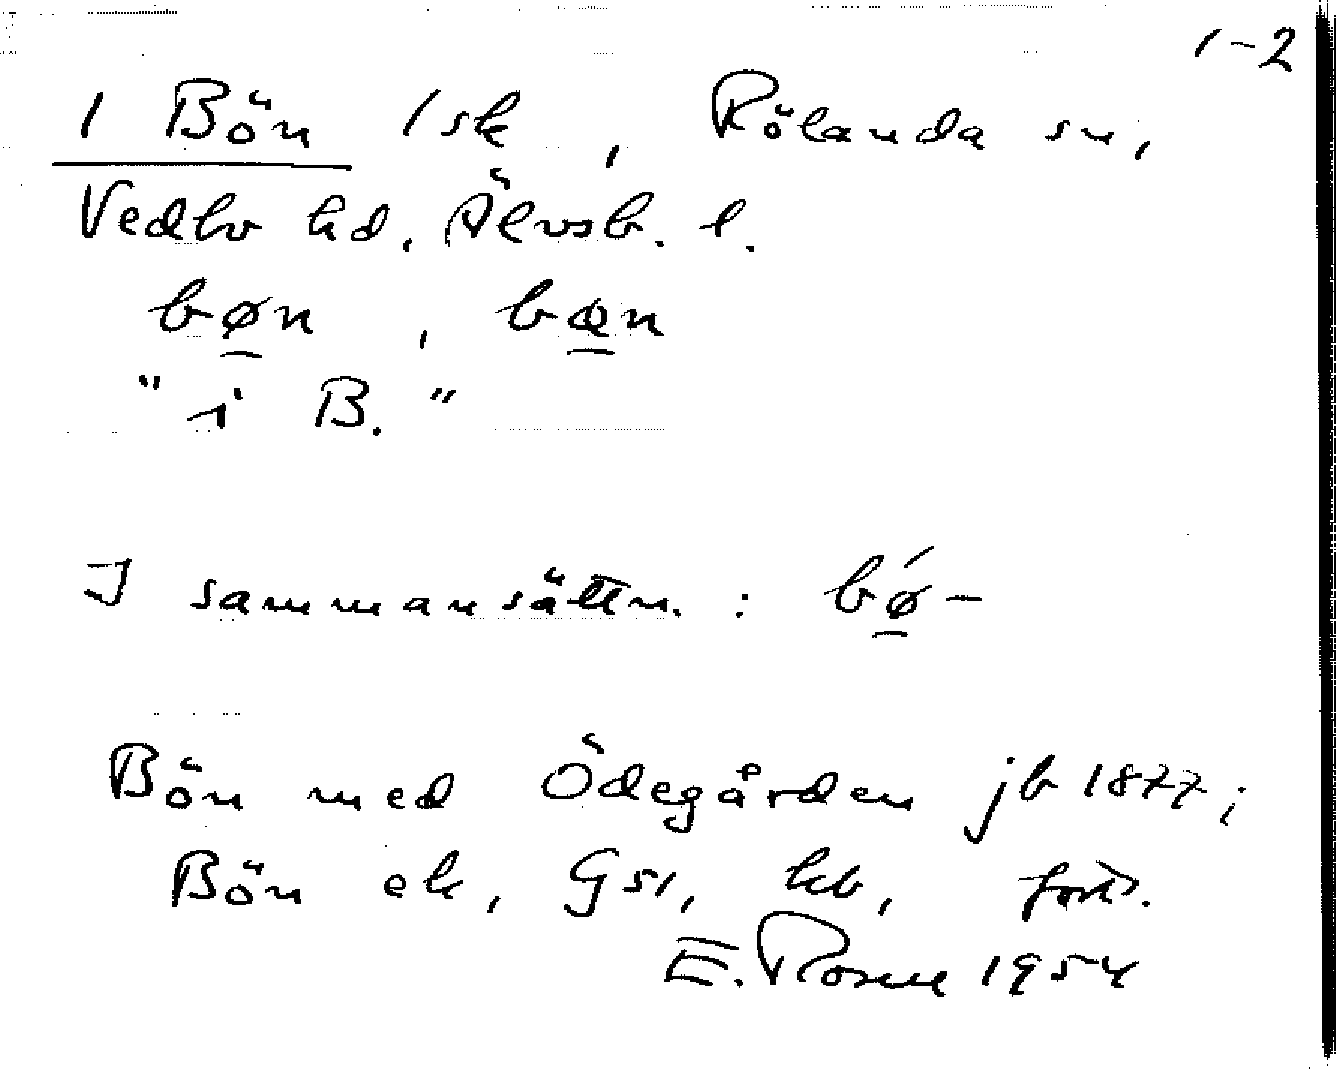 1-2
1 Bön 1 sk, Rölanda sn,
Vedbo hd, Älvsb. l.
bøn, bœn
"i B."
I sammansättn. : bǿ-
Bön med Ödegården jb 1877;
Bön ek, Gs1, kb, forts.
E. Rosell 1954